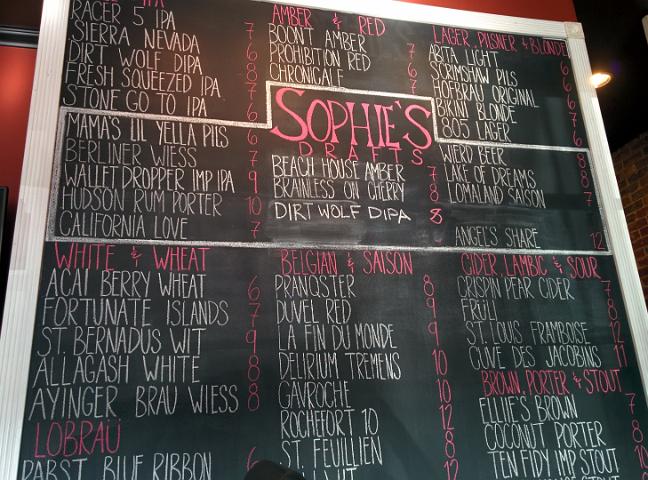 IPA
RACER 5 IPA 7
SIERRA NEVADA 6
DIRT WOLF DIPA 8
FRESH SQUEEZED IPA 7
STONE GO TO IPA 6
AMBER & RED
BOONT AMBER 7
PROHIBITION RED 6
CHRONICALE 7
LAGER, PILSNER & BLONDE
ABITA LIGHT 6
SCRIMSHAW PILS 6
HOFBRAU ORIGINAL 7
BIKINI BLONDE 7
805 LAGER 6
SOPHIE'S
DRAFTS
MAMA'S LIL YELLA PILS 6
BERLINER WIESS 7
WALLET DROPPER IMP IPA 9
HUDSON RUM PORTER 10
CALIFORNIA LOVE 7
BEACH HOUSE AMBER 7
BRAINLESS ON CHERRY 8
DIRT WOLF DIPA 8
WERD BEER 8
LAKE OF DREAMS 8
LOMALAND SAISON 7
ANGEL'S SHARE 12
WHITE & WHEAT
ACAI BERRY WHEAT 6
FORTUNATE ISLANDS 7
ST. BERNADUS WIT 9
ALLAGASH WHITE 8
AYINGER BRAU WIESS 8
LOBRAÜ
PABST BLUE RIBBON 6
BELGIAN & SAISON
PRANQSTER 8
DUVEL RED 9
LA FIN DU MONDE 9
DELIRIUM TREMENS 10
GAVROCHE 10
ROCHEFORT 10 12
ST. FEUILLIEN 8
WIT 12
CIDER, LAMBIC & SOUR
CRISPIN PEAR CIDER 7
FRÜLI 8
ST. LOUIS FRAMBOISE 12
CUVE DES JACOBINS 11
BROWN, PORTER & STOUT
ELLIE'S BROWN 7
COCONUT PORTER 8
TEN FIDY IMP STOUT 10